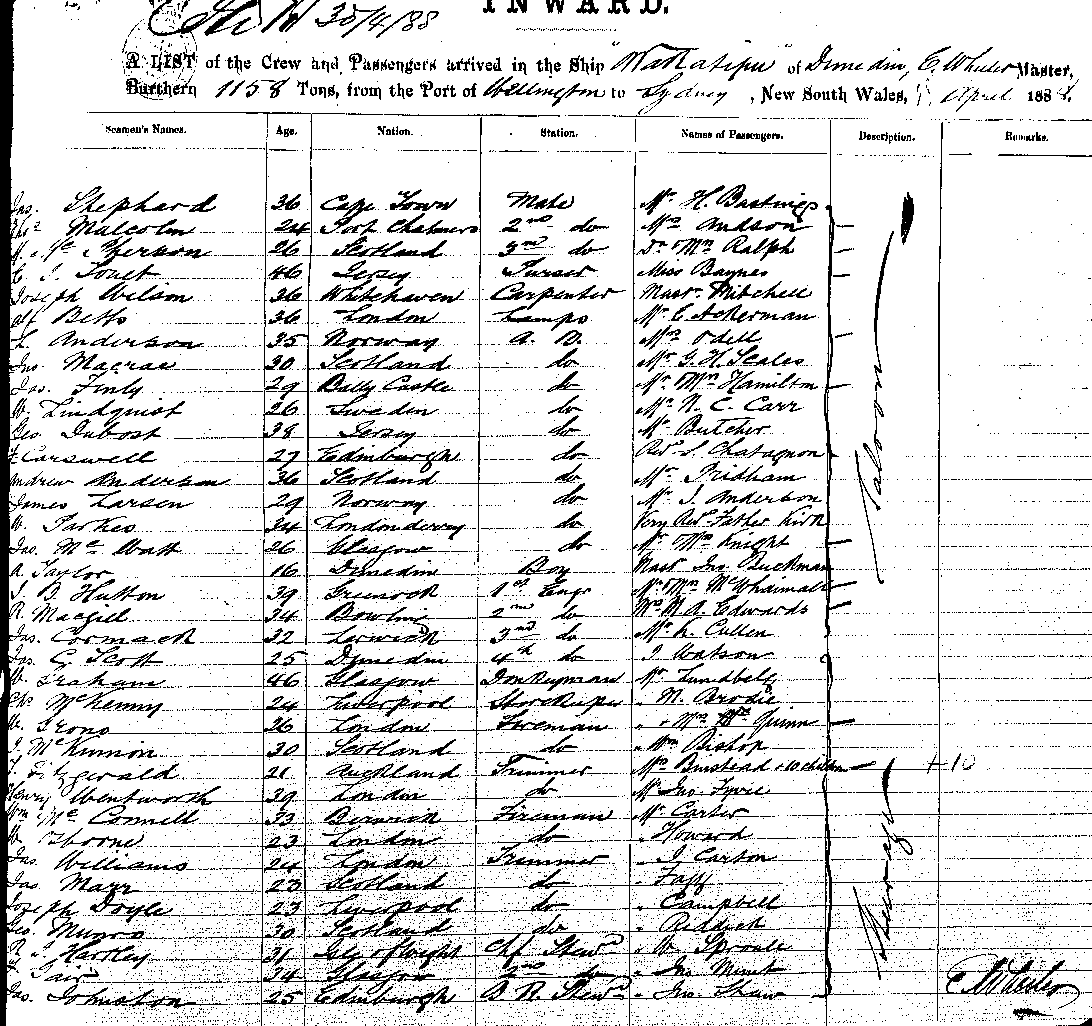 INWARD.
30/4/88
A LIST of the Crew and Passengers arrived in the Ship "Wakatipu" of Dunedin, C. Wheeler Master,
Burthern 1158 Tons, from the Port of Wellington to Sydney, New South Wales, April 1888.
Seamen's Names. Age. Nation. Station. Names of Passengers. Description. Remarks.
Jas. Shephard 36 Cape Town Mate Mr H. Bastings
Malcolm 24 Port Chalmers 2nd do Mrs Andson
McPherson 26 Scotland 3rd do Dr Mrs Ralph
46 Jersey Purser Miss Baynes
Joseph Wilson 36 Whitehaven Carpenter Mast. Mitchell
Alf Betts 36 London Lamps Mr C. Ackerman
Anderson 35 Norway A. B. Mrs Odell
Jno. Macrae 30 Scotland do Mr G. H. Scales
Jas. Finly 29 Bally Castle do Mr Mrs Hamilton
W. Lindquist 26 Sweden do Mr N. C. Carr
Geo. Dubost 38 Jersey do Mr Butcher
Carswell 27 Edinburgh do Revd S. Chatagnon
Andrew Anderson 36 Scotland do Mr Pridham
James Larsen 29 Norway do Mr J. Anderson
W. Parkes 34 Londonderry do Very Revd Father Kirk
Jas. McWatt 26 Glasgow do Mr Mrs Knight
A. Taylor 16 Dunedin Boy Mast Jno Buckman
J. B. Hutton 39 Greenock 1st Engr Mr Mrs
R. Macgill 34 Bowling 2nd do Mrs M. A. Edwards
Jas. Cormack 32 Lerwick 3rd do Mr K. Cullen
Jas. G. Scott 25 Dunedin 4th do J Watson
W. Graham 46 Glasgow Donkeyman Mr Lundberg
McKenny 24 Liverpool Storekeeper " N. Brodie
W. Grono 26 London Fireman " + Mrs Quinn
J. McKinnon 30 Scotland do " Wm Bishop
Fitzgerald 21 Auckland Trimmer Mrs Binstead + 10 children +10
Henry Wentworth 39 London do Mr Jno. Fyvie
Wm McConnell 33 Berwick Fireman Mr Carter
W. Osborne 23 London do " Howard
Jas. Williams 24 London Trimmer " J Carson
Jas. Marr 23 Scotland do " Fagg
Joseph Doyle 23 Liverpool do " Campbell
Geo. Munro 30 Scotland do " Reddick
R. J. Hartley 31 Isle of Wight Chf Stewd " W Sproule
Fair 34 Glasgow 2nd do " Jno
Jas. Johnston 25 Edinburgh B. R. Stewd " Jno. Shaw
Saloon
Steerage
C Wheeler